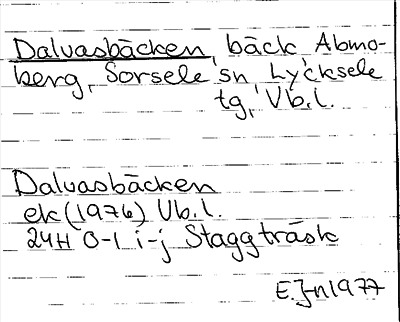 Dalvasbäcken, bäck, Abmo-
berg, Sorsele sn, Lycksele
tg, Vb.l.
Dalvasbäcken
ek (1976) Vb.l.
24H 0-1 i-j Staggträsk
E.J-n 1977